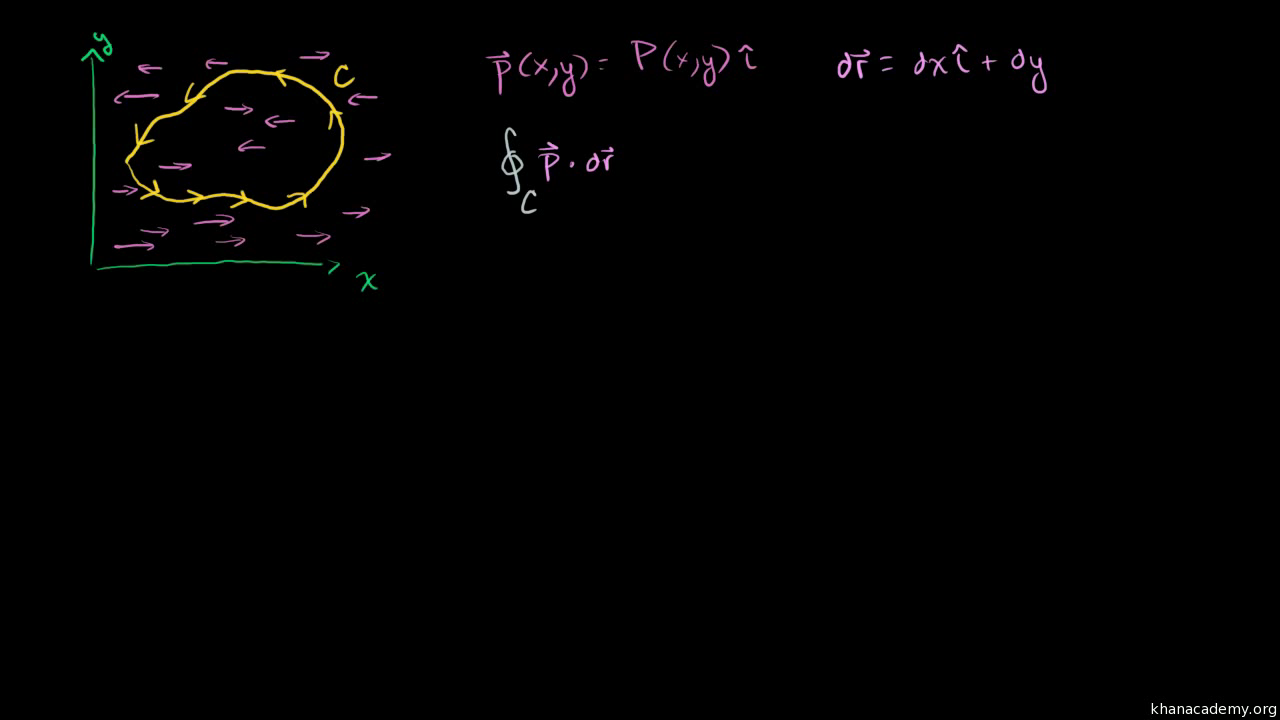 y
C
x
p⃗(x,y) = P(x,y) î
dr⃗ = dx î + dy
∮_C p⃗ · dr⃗
khanacademy.org